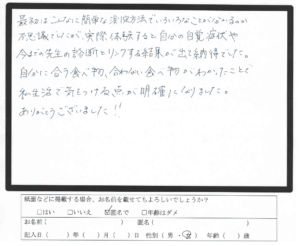 最初はこんなに簡単な測定方法でいろいろなことがわかるのか
不思議でしたが、実際体験すると自分の自覚症状や
今までの先生の診断とリンクする結果が出て納得でした。
自分に合う食べ物、合わない食べ物がわかったことで
私生活で気をつける点が明確になりました。
ありがとうございました!!
紙面などに掲載する場合、お名前を載せてもよろしいでしょうか?
□はい □いいえ ☑匿名で □年齢はダメ
お名前( ) 匿名( )
記入日( )年( )月( )日 性別(男・女) 年齢( )歳